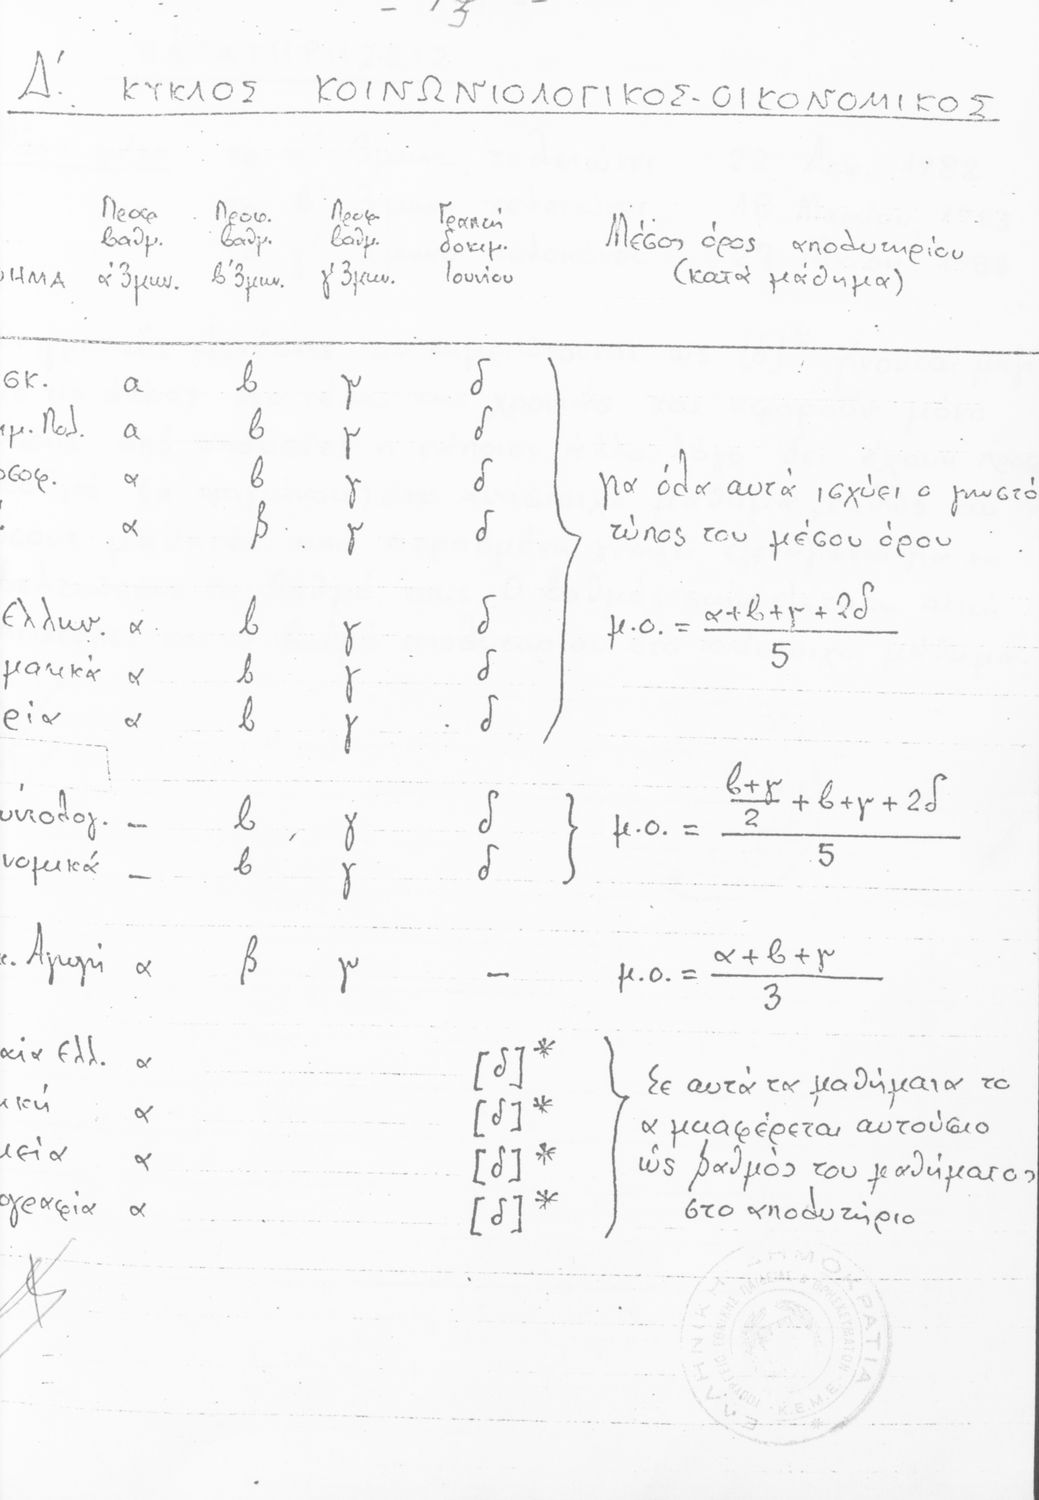 Δ'. ΚΥΚΛΟΣ ΚΟΙΝΩΝΙΟΛΟΓΙΚΟΣ-ΟΙΚΟΝΟΜΙΚΟΣ
Προφ. Προφ. Προφ. Γραπτή
βαθμ. βαθμ. βαθμ. δοκιμ. Μέσος όρος απολυτηρίου
ΘΗΜΑ α'3μην. β'3μην. γ'3μην. Ιουνίου (κατά μάθημα)
σκ. α β γ δ
ημ. Πολ. α β γ δ
οσοφ. α β γ δ για όλα αυτά ισχύει ο γνωστό
α β γ δ τύπος του μέσου όρου
Ελλην. α β γ δ μ.ο. = α+β+γ+2δ
5
ματικά α β γ δ
ρία α β γ δ
β+γ
2 + β+γ+2δ
ωνιολογ. – β γ δ μ.ο. =
5
νομικά – β γ δ
κ. Αγωγή α β γ – μ.ο. = α+β+γ
3
αία Ελλ. α [δ]*
Σε αυτά τα μαθήματα το
ική α [δ]* α μεταφέρεται αυτούσιο
μεία α [δ]* ως βαθμός του μαθήματος
ογραφία α [δ]* στο απολυτήριο
ΕΛΛΗΝΙΚΗ ΔΗΜΟΚΡΑΤΙΑ
ΥΠΟΥΡΓΕΙΟ ΕΘΝΙΚΗΣ ΠΑΙΔΕΙΑΣ & ΘΡΗΣΚΕΥΜΑΤΩΝ
Κ.Ε.Μ.Ε.